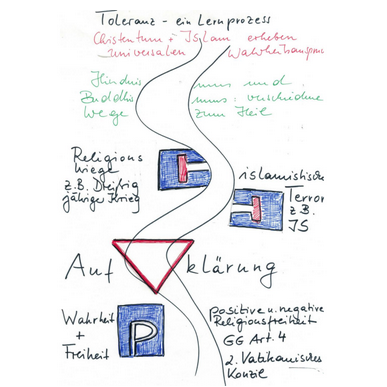 Toleranz - ein Lernprozess
Christentum + Islam erheben
universalen Wahrheitsanspru
Hinduismus und
Buddhismus: verschiedene
Wege zum Heil
Religions
kriege
z.B. Dreißig
jährige Krieg
islamistische
Terror
z.B.
IS
Aufklärung
Wahrheit
+
Freiheit
P
positive u. negative
Religionsfreiheit
GG Art. 4
2. Vatikanisches
Konzil